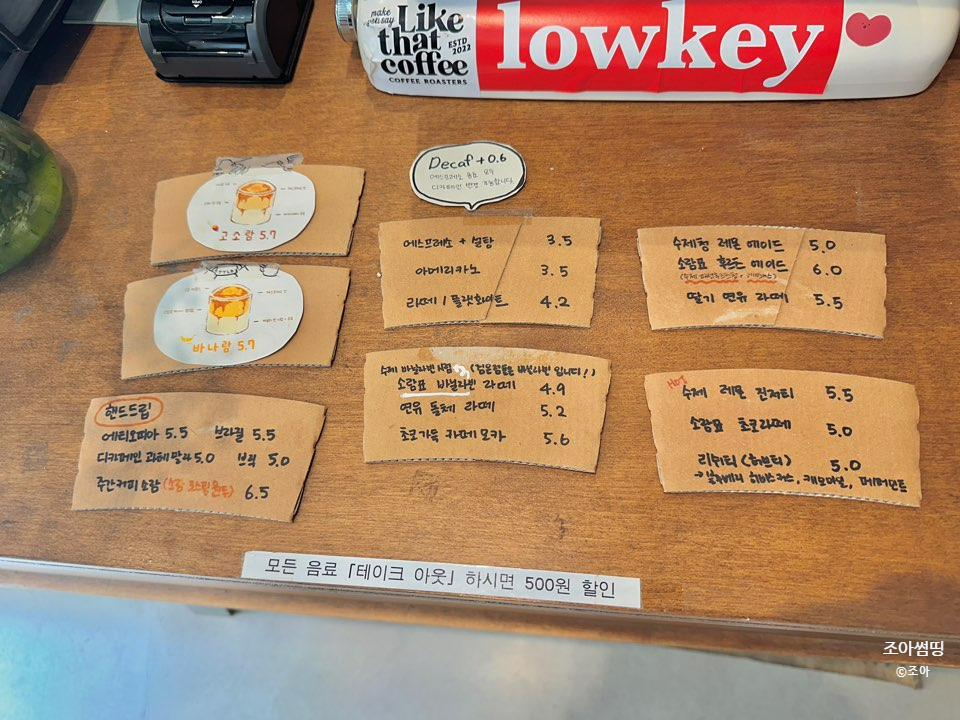 make
you say
Like
that
coffee
ESTD
2022
COFFEE ROASTERS
lowkey
Decaf + 0.6
에스프레소 음료 모두
디카페인 변경 가능합니다.
고소람 5.7
바나람 5.7
핸드드립
에티오피아 5.5 브라질 5.5
디카페인 과테말라 5.0 브릭 5.0
주간커피 소람 (소람 로스팅 원두) 6.5
에스프레소 + 설탕 3.5
아메리카노 3.5
라떼 / 플랫화이트 4.2
수제 바닐라빈 시럽 (검은 점들은 바닐라빈 입니다!)
소람표 바닐라빈 라떼 4.9
연유 돌체 라떼 5.2
초코가득 카페 모카 5.6
수제청 레몬 에이드 5.0
소람표 후르츠 에이드 6.0
딸기 연유 라떼 5.5
Hot
수제 레몬 진저티 5.5
소람표 초코라떼 5.0
리쉬티 (허브티) 5.0
→ 블루베리 히비스커스, 캐모마일, 페퍼민트
모든 음료 「테이크 아웃」 하시면 500원 할인
조아썸띵
©조아